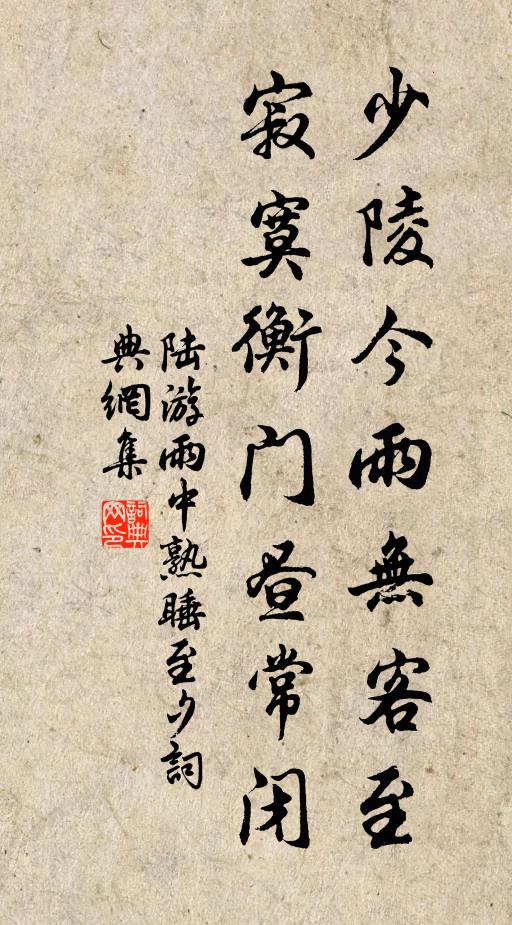 少陵今雨無客至
寂寞衡门昼常闭
陆游雨中熟睡至夕詞
典網集
詞典网印